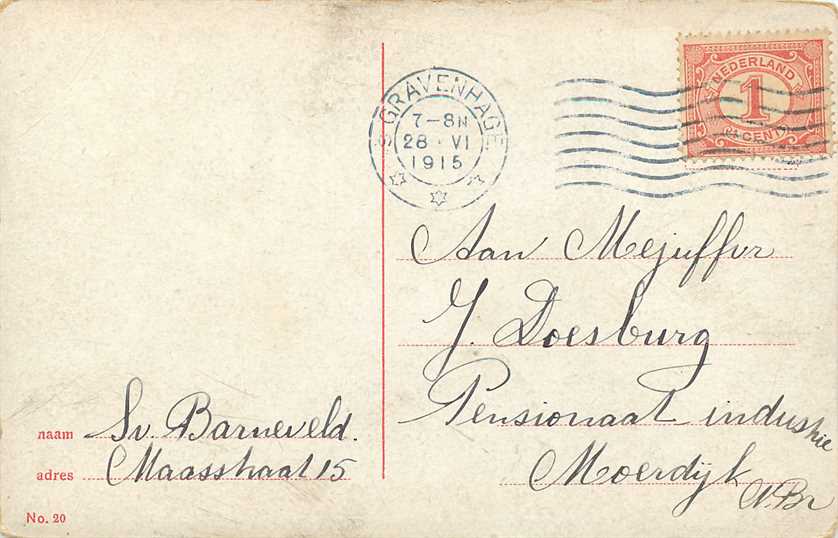 'S GRAVENHAGE
7-8N
28 · VI
1915
NEDERLAND
1
CENT
Aan Mejuffer
J. Doesburg
Pensionaat industrie
Moerdijk
N. Br
naam Sv. Barneveld.
adres Maasstraat 15
No. 20